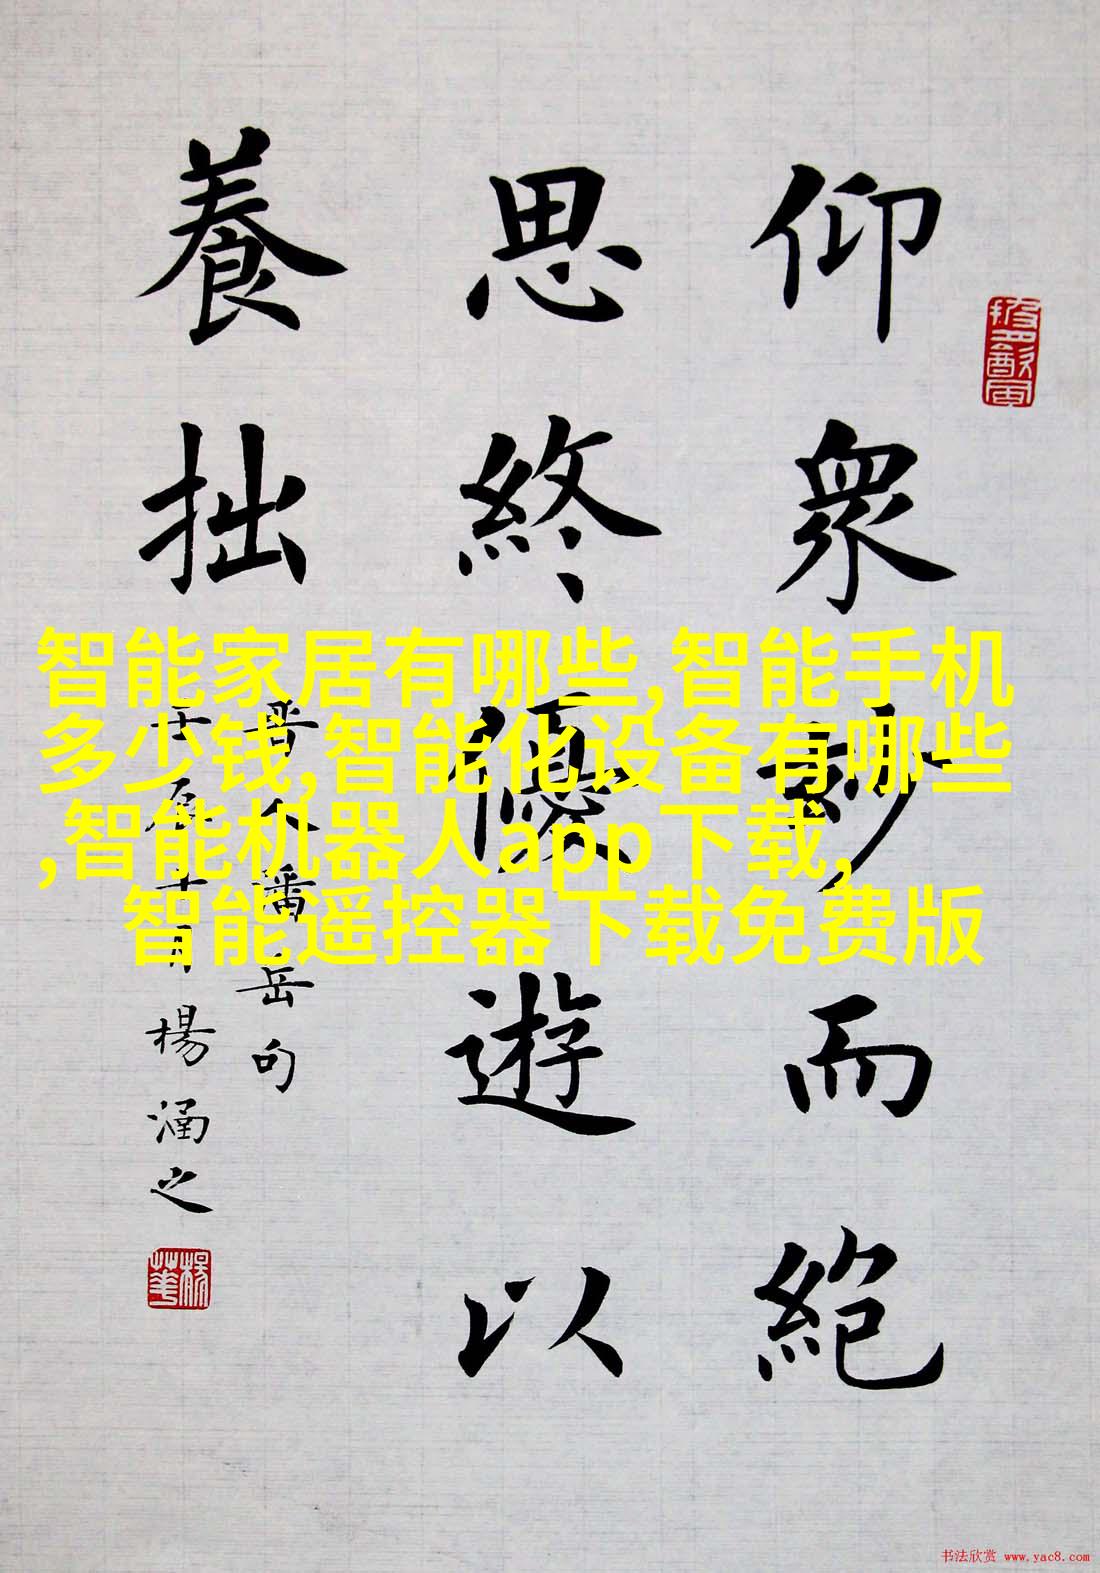 仰衆妙而絶
思終優遊以
養拙
晋人潘岳句
壬辰十月楊涵之
智能家居有哪些,智能手机
多少钱,智能化设备有哪些
,智能机器人app下载,
智能遥控器下载免费版
书法欣赏 www.yac8.com